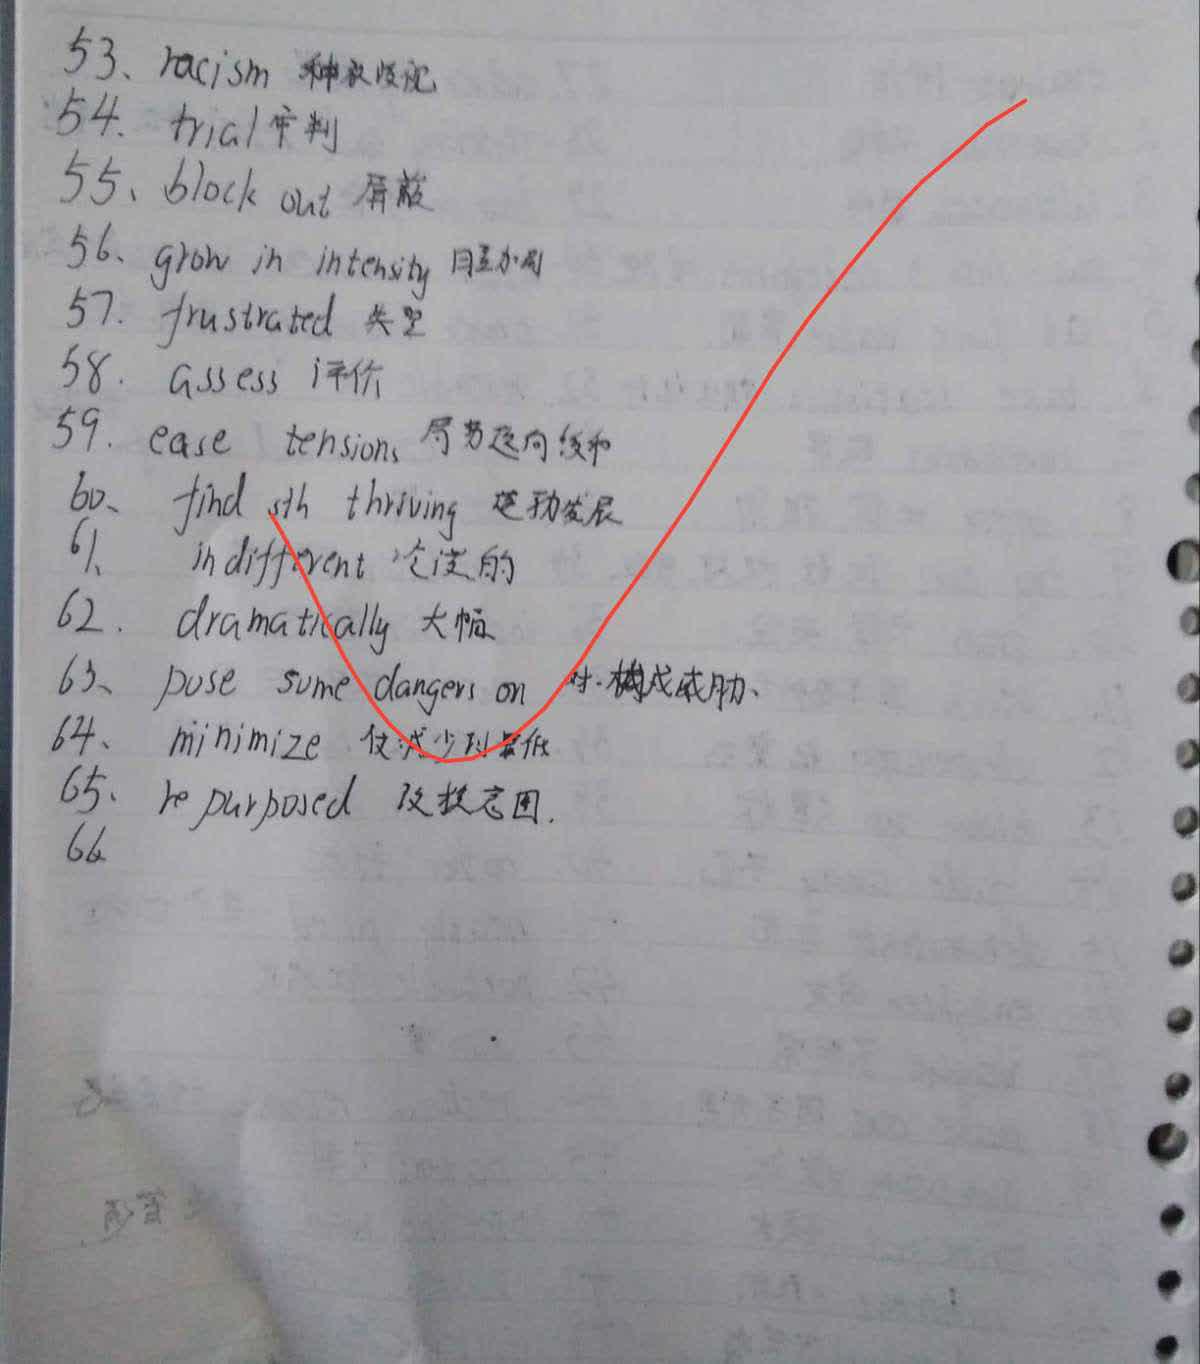 53、racism 种族歧视
54. trial 审判
55、block out 屏蔽
56、grow in intensity 日益加剧
57. frustrated 失望
58. assess 评价
59. ease tensions 局势趋向缓和
60、find sth thriving 蓬勃发展
61、indifferent 冷淡的
62. dramatically 大幅
63、pose some dangers on 对·构成威胁、
64、minimize 使减少到最低
65、repurposed 改换意图.
66